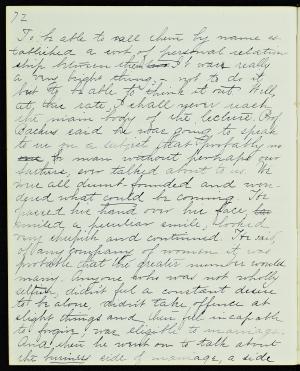 72
To be able to call them by name es-
tablished a sort of personal relation
ship between them. It was really
a very bright thing, - not to do it,
but to be able to think it out. Well,
at this rate, I shall never reach
the main body of the lecture. Prof
Bachus said he was going to speak
to us on a subject that probably no
man without perhaps our
fathers, ever talked about to us. We
were all dumb founded and won-
dered what could be coming. He
passed his hand over his face,
smiled a peculiar smile, looked
very sheepish and continued. For in
any company of women it was
probable that the greater number would
marry. Anyone who was not wholly
selfish, didn't feel a constant desire
to be alone, didn't take offence at
slight things and then feel incapable
to forgive, was eligible to marriage.
And then he went on to talk about
the business side of marriage, a side